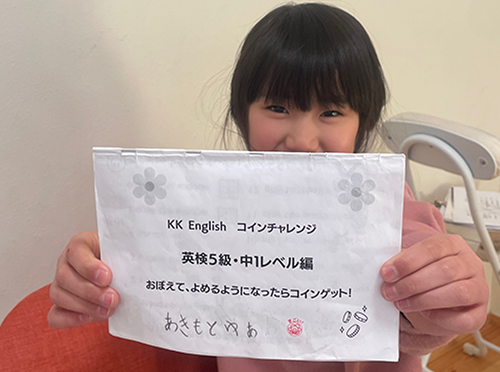 KK English コインチャレンジ
英検5級・中1レベル編
おぼえて、よめるようになったらコインゲット!
あきもとゆあ